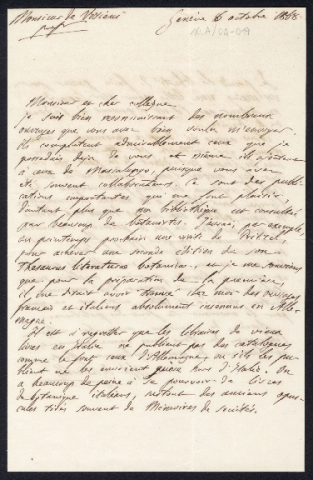 Monsieur de Visiani
Genève 6 octobre 1868
prof
Monsieur et cher collègue
Je suis bien reconnaissant des nombreux
ouvrages que vous avez bien voulu m'envoyer.
Ils complètent admirablement ceux que je
possédais déjà de vous et même ils ajoutent
à ceux de Massalongo, puisque vous avez
été souvent collaborateurs. Ce sont des publi-
cations importantes qui me font plaisir,
d'autant plus que ma bibliothèque est consultée
par beaucoup de botanistes. J'aurai, par exemple,
au printemps prochain une visite de Pritzel,
pour achever une seconde édition de son
Thesaurus literaturae botanicae, et je me souviens
que pour la préparation de la première,
il me disait avoir trouvé chez moi des ouvrages
français et italiens absolument inconnus en Alle-
magne.
Il est à regretter que les libraires de vieux
livres en Italie ne publient pas des catalogues
comme le font ceux d'Allemagne, ou s'ils les pu-
blient ne les envoient guère hors d'Italie. On
a beaucoup de peine à se pourvoir de livres
de botanique italiens, surtout des anciens opus-
cules tirés souvent de Mémoires de sociétés.